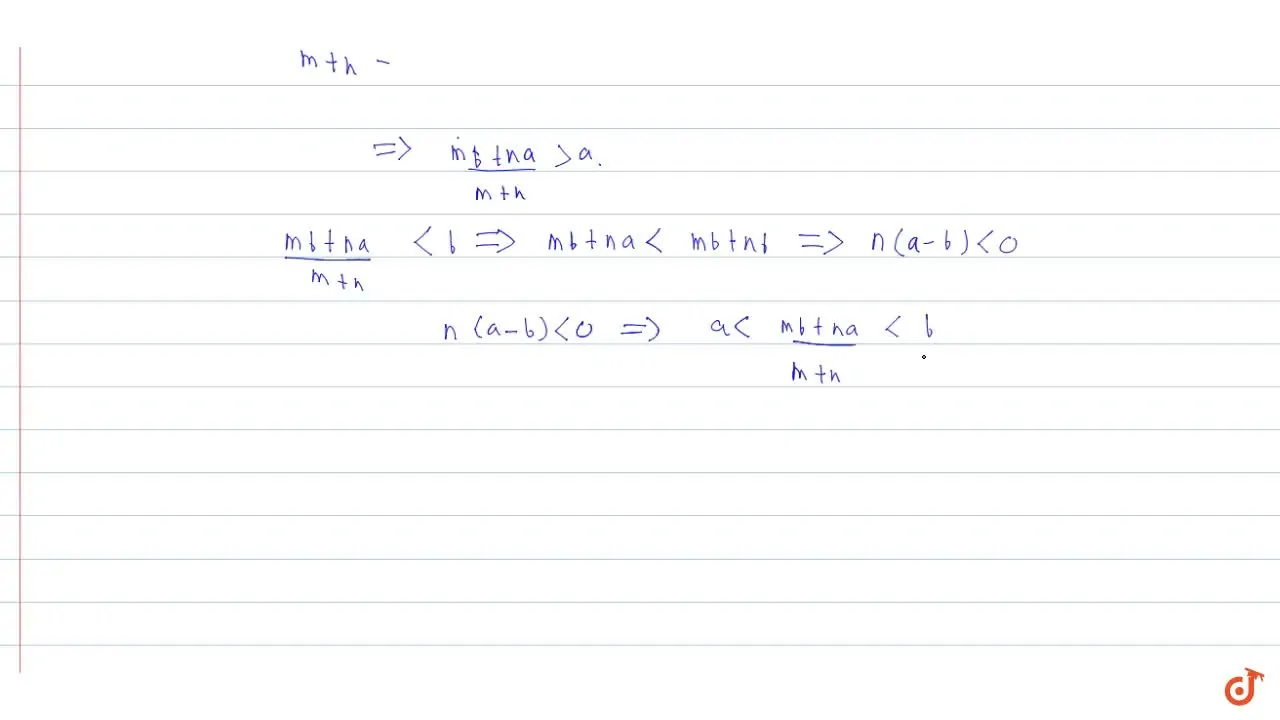 m+n -
=> mb+na/m+n > a.
mb+na/m+n < b => mb+na < mb+nb => n(a-b)<0
n(a-b)<0 => a < mb+na/m+n < b